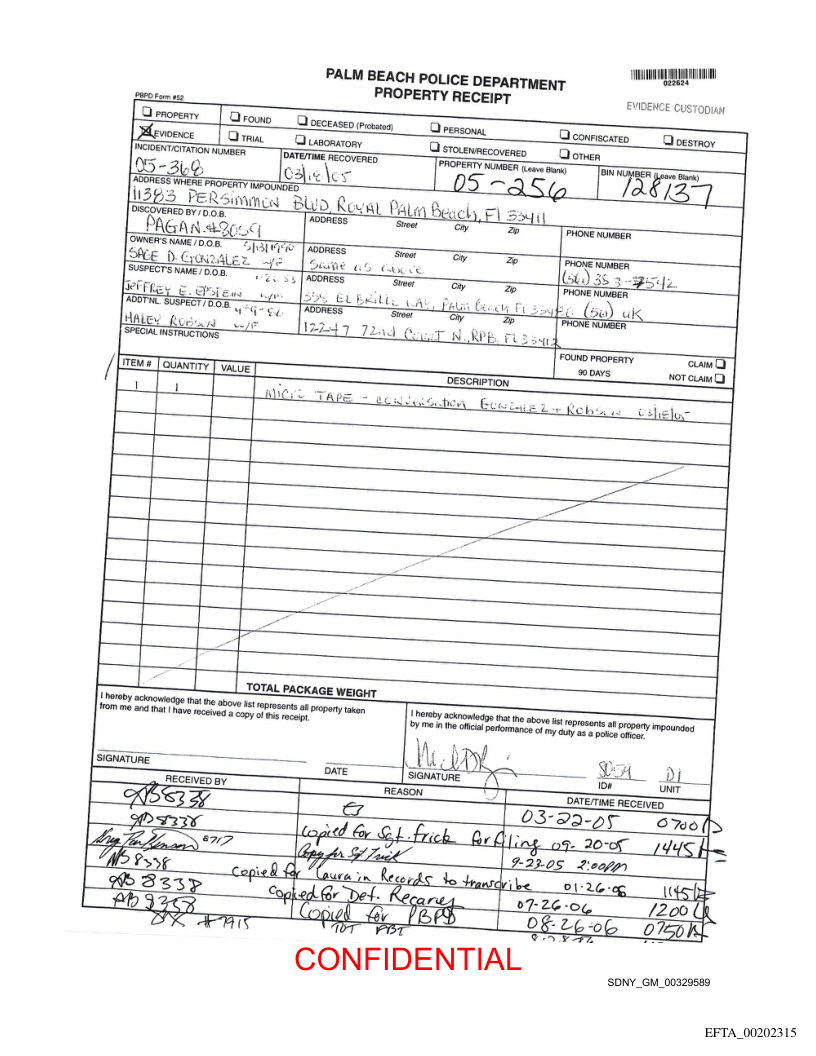 PALM BEACH POLICE DEPARTMENT
PROPERTY RECEIPT
022524
EVIDENCE CUSTODIAN
PBPD Form #52
PROPERTY FOUND DECEASED (Probated) PERSONAL CONFISCATED DESTROY
EVIDENCE TRIAL LABORATORY STOLEN/RECOVERED OTHER
INCIDENT/CITATION NUMBER DATE/TIME RECOVERED PROPERTY NUMBER (Leave Blank) BIN NUMBER (Leave Blank)
05-368 03/18/05 05-256 128137
ADDRESS WHERE PROPERTY IMPOUNDED
11383 PERSIMMON BLVD, ROYAL PALM Beach, Fl 33411
DISCOVERED BY / D.O.B. ADDRESS Street City Zip PHONE NUMBER
PAGAN #8059
OWNER'S NAME / D.O.B. ADDRESS Street City Zip PHONE NUMBER
SAGE D. GONZALEZ W/F SAME AS ABOVE (561) 353-
SUSPECT'S NAME / D.O.B. ADDRESS Street City Zip PHONE NUMBER
JEFFREY E. EPSTEIN W/M EL BRILLO WAY, PALM Beach Fl (561) UK
ADDT'NL. SUSPECT / D.O.B. ADDRESS Street City Zip PHONE NUMBER
HALEY ROBSON W/F 12247 72nd Court N., RPB, Fl
SPECIAL INSTRUCTIONS
FOUND PROPERTY CLAIM
90 DAYS NOT CLAIM
ITEM # QUANTITY VALUE DESCRIPTION
1 1 MICRO TAPE - CONVERSATION GONZALEZ + ROBSON 03/18/05
TOTAL PACKAGE WEIGHT
I hereby acknowledge that the above list represents all property taken
from me and that I have received a copy of this receipt.
I hereby acknowledge that the above list represents all property impounded
by me in the official performance of my duty as a police officer.
SIGNATURE DATE SIGNATURE ID# UNIT
RECEIVED BY REASON DATE/TIME RECEIVED
8338 03-22-05 0700
8338 copied for Sgt. Frick for filing 09-20-05 1445
8717 Copy for Sgt Frick 9-23-05 2:00pm
8338 copied for Laura in Records to transcribe 01-26-06 1145
8338 copied for Det. Recarey 07-26-06 1200
Copied for PBPD 08-26-06 0750
#7915
CONFIDENTIAL
SDNY_GM_00329589
EFTA_00202315